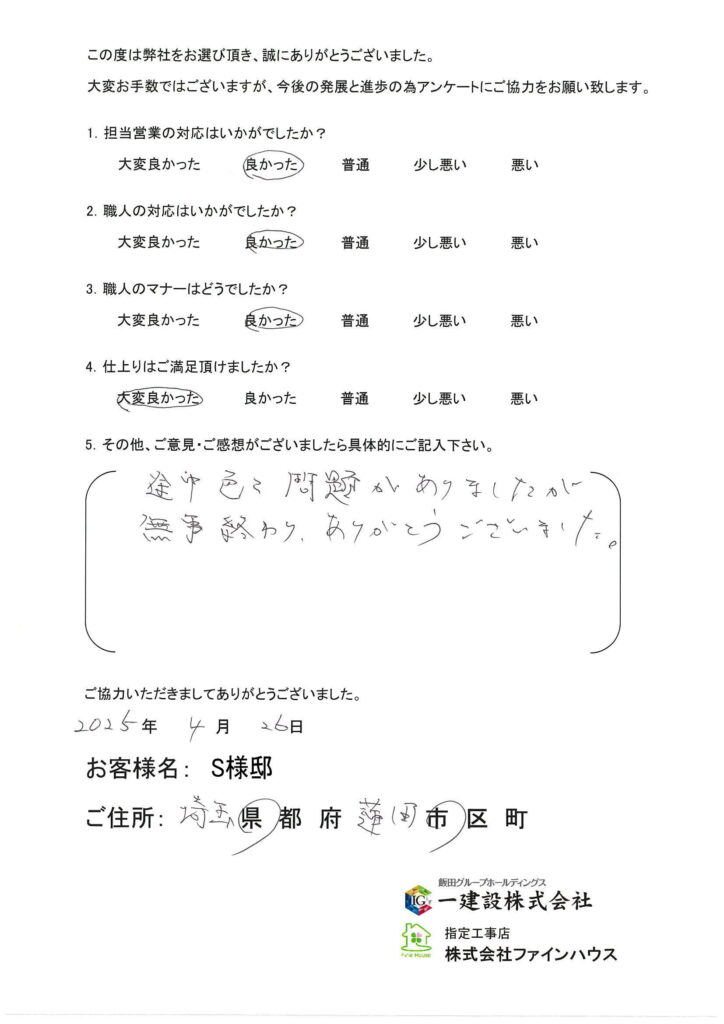 この度は弊社をお選び頂き、誠にありがとうございました。
大変お手数ではございますが、今後の発展と進歩の為アンケートにご協力をお願い致します。
1. 担当営業の対応はいかがでしたか？
大変良かった 良かった 普通 少し悪い 悪い
2. 職人の対応はいかがでしたか？
大変良かった 良かった 普通 少し悪い 悪い
3. 職人のマナーはどうでしたか？
大変良かった 良かった 普通 少し悪い 悪い
4. 仕上りはご満足頂けましたか？
大変良かった 良かった 普通 少し悪い 悪い
5. その他、ご意見・ご感想がございましたら具体的にご記入下さい。
途中色々問題がありましたが
無事終わり、ありがとうございました。
ご協力いただきましてありがとうございました。
2025年 4月 26日
お客様名： S様邸
ご住所： 埼玉県都府 蓮田市区町
飯田グループホールディングス
IG 一建設株式会社
指定工事店
Fine House 株式会社ファインハウス